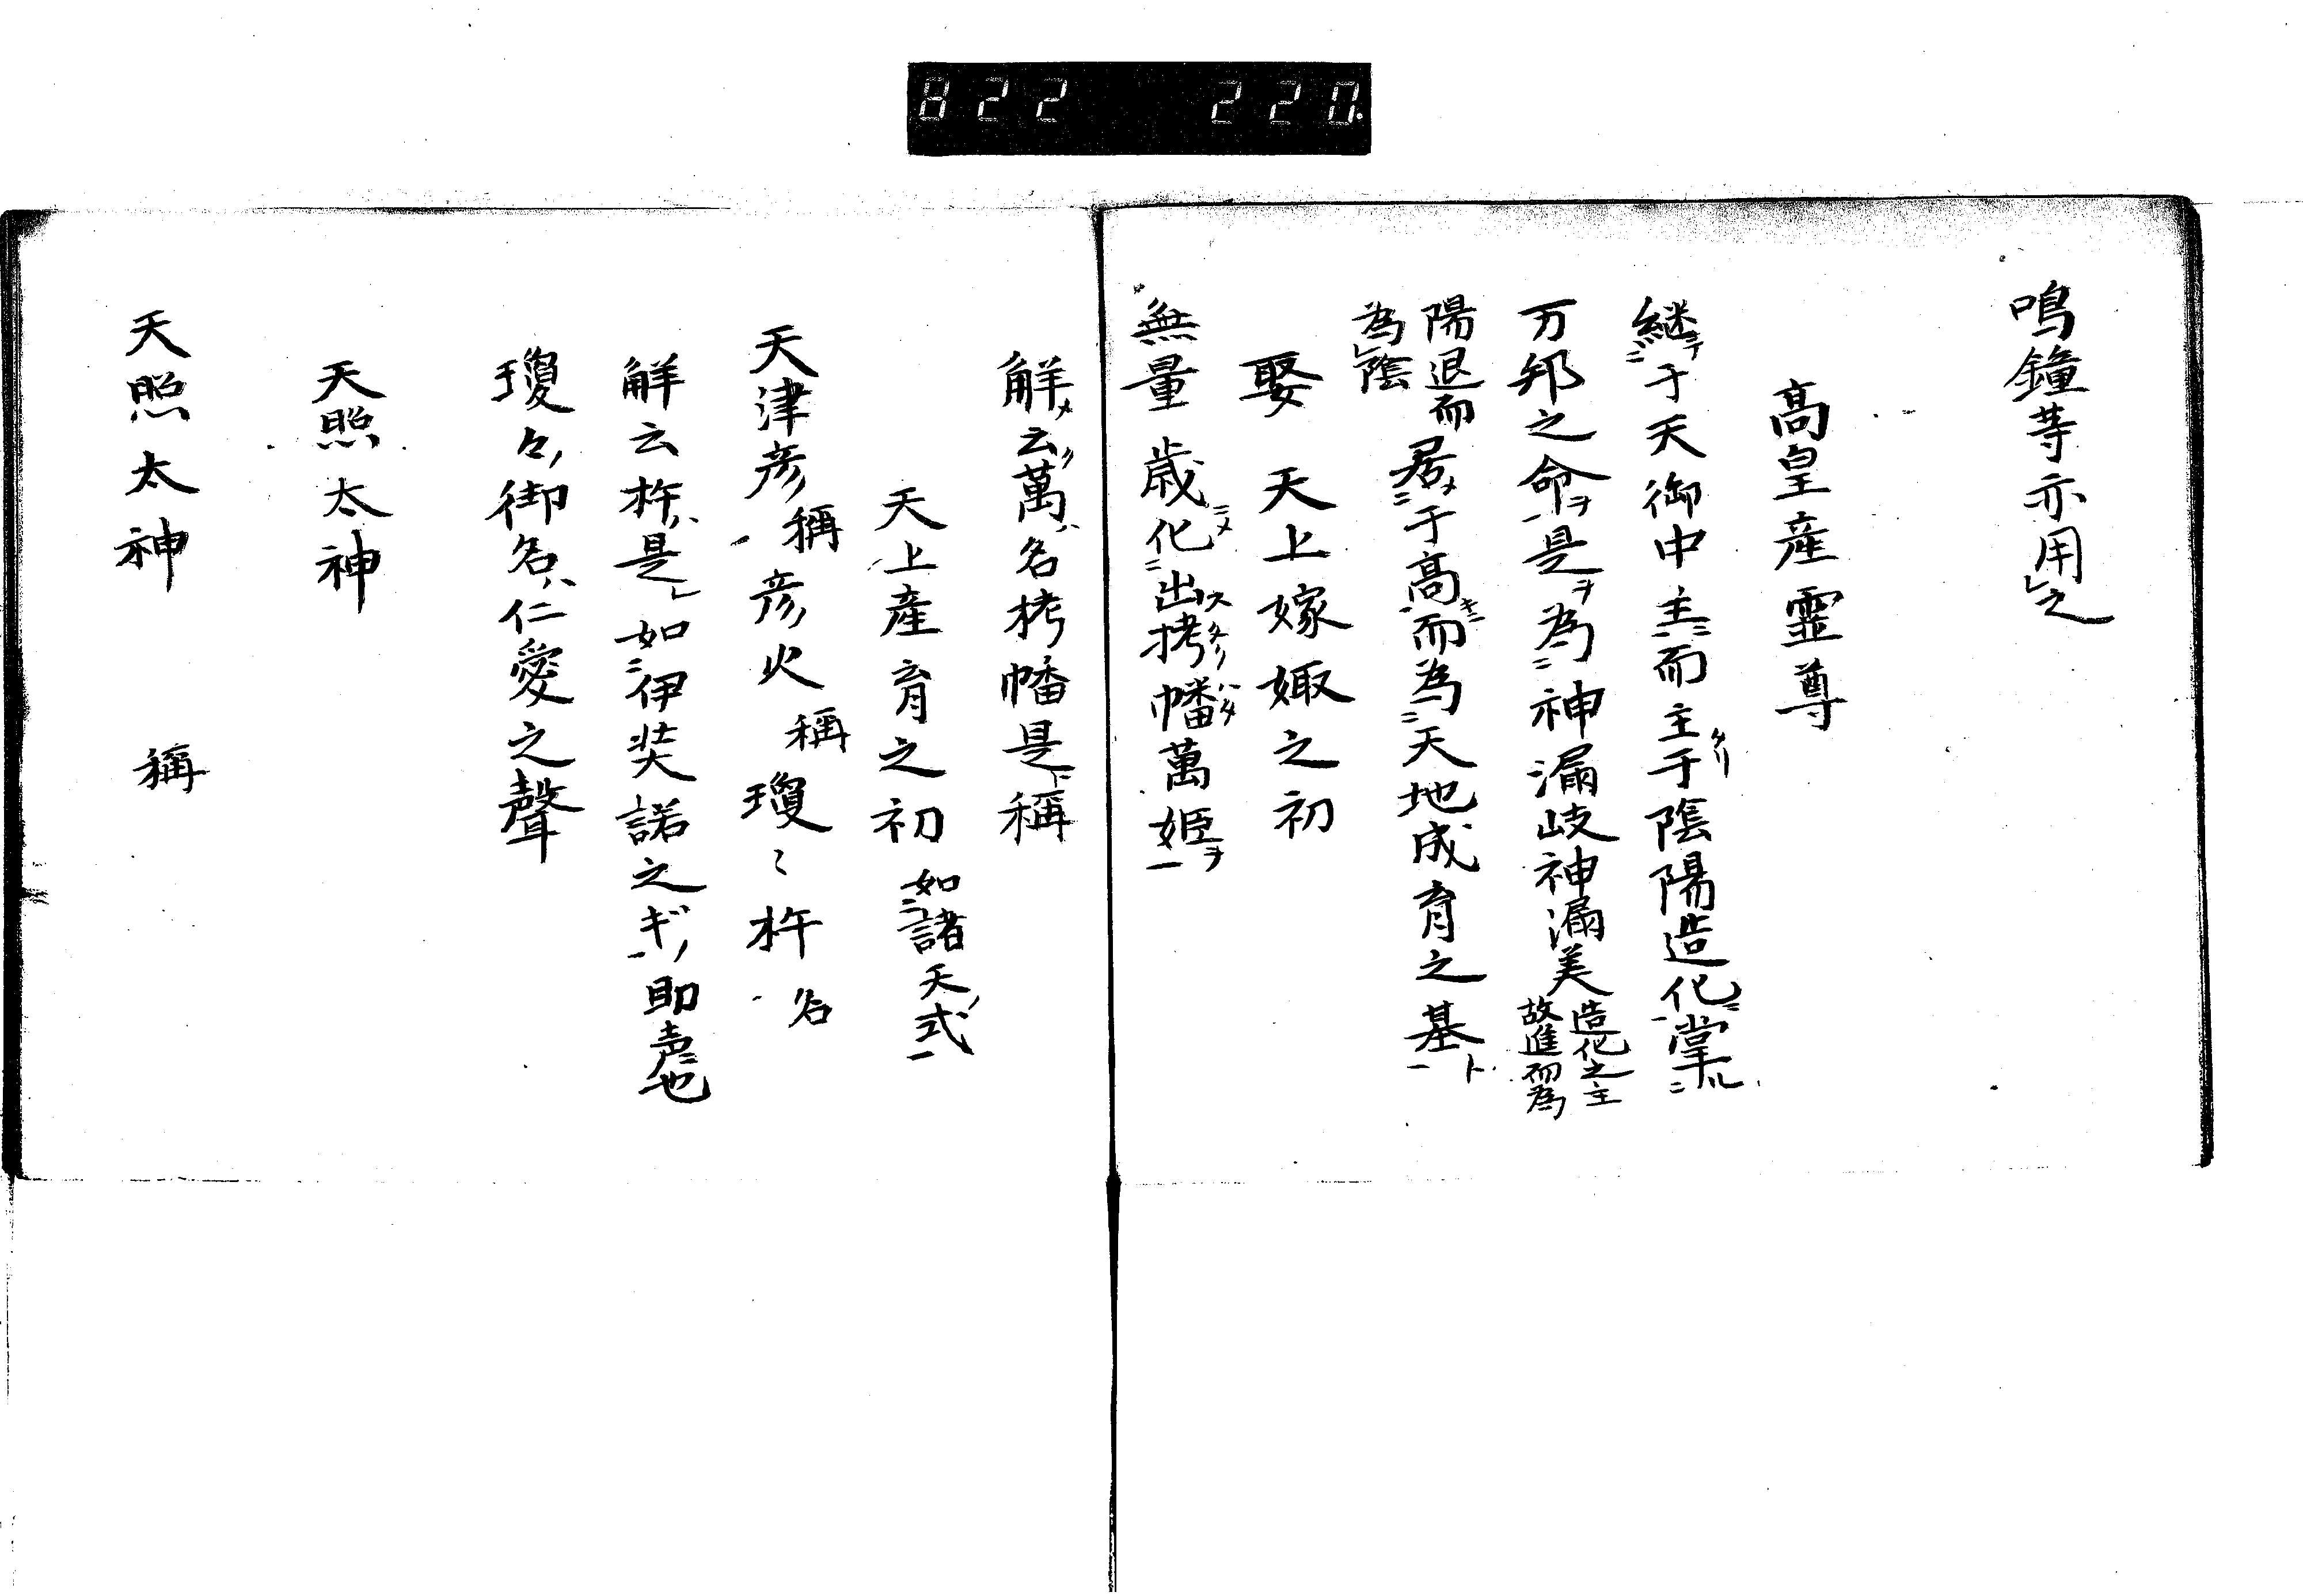 822 220.
鳴鐘等亦用レ之
高皇産靈尊
継テ二于天御中主ニ一而主タリ于陰陽造化ニ一掌ル二
万邦之命ヲ一是ヲ為二神漏岐神漏美造化之主
故進而為
陽退而
為レ陰居メ二于高キニ一而為二天地成育之基ト一
娶天上嫁娵之初
無量歳ニメ化二出ス栲タク幡ハタ萬姫ヲ一
解メ云萬ノハ名栲幡是ト稱
天上産育之初如二諸天ノ式一
天津彦稱彦火稱瓊〻杵名
解云杵ハ是レ如二伊奘諾之ギノ一助声也
瓊々ノ御名ハ仁愛之聲
天照太神
天照太神 稱